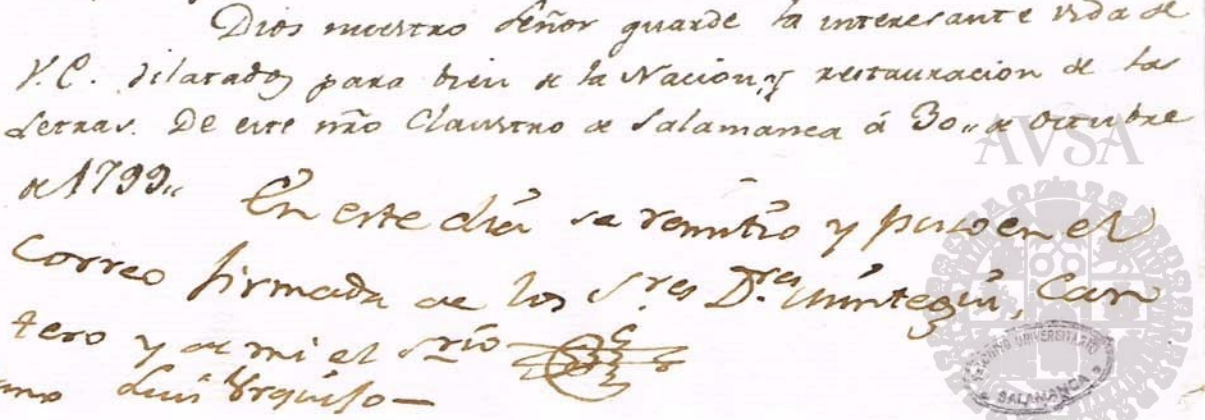 Dios nuestro Señor guarde la interesante vida de
V.E. dilatados para bien de la Nacion, y restauracion de las
Letras. De este nr̃o Claustro de Salamanca á 30,, de octubre
de 1799,,
En este dia se remitio y puso en el
Correo firmada de los Sres Dres Can
tero y de mi el Srio
Luis Urquiso
AVSA
ARCHIVO UNIVERSITARIO
SALAMANCA